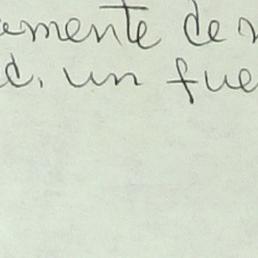 amente de
d, un fue